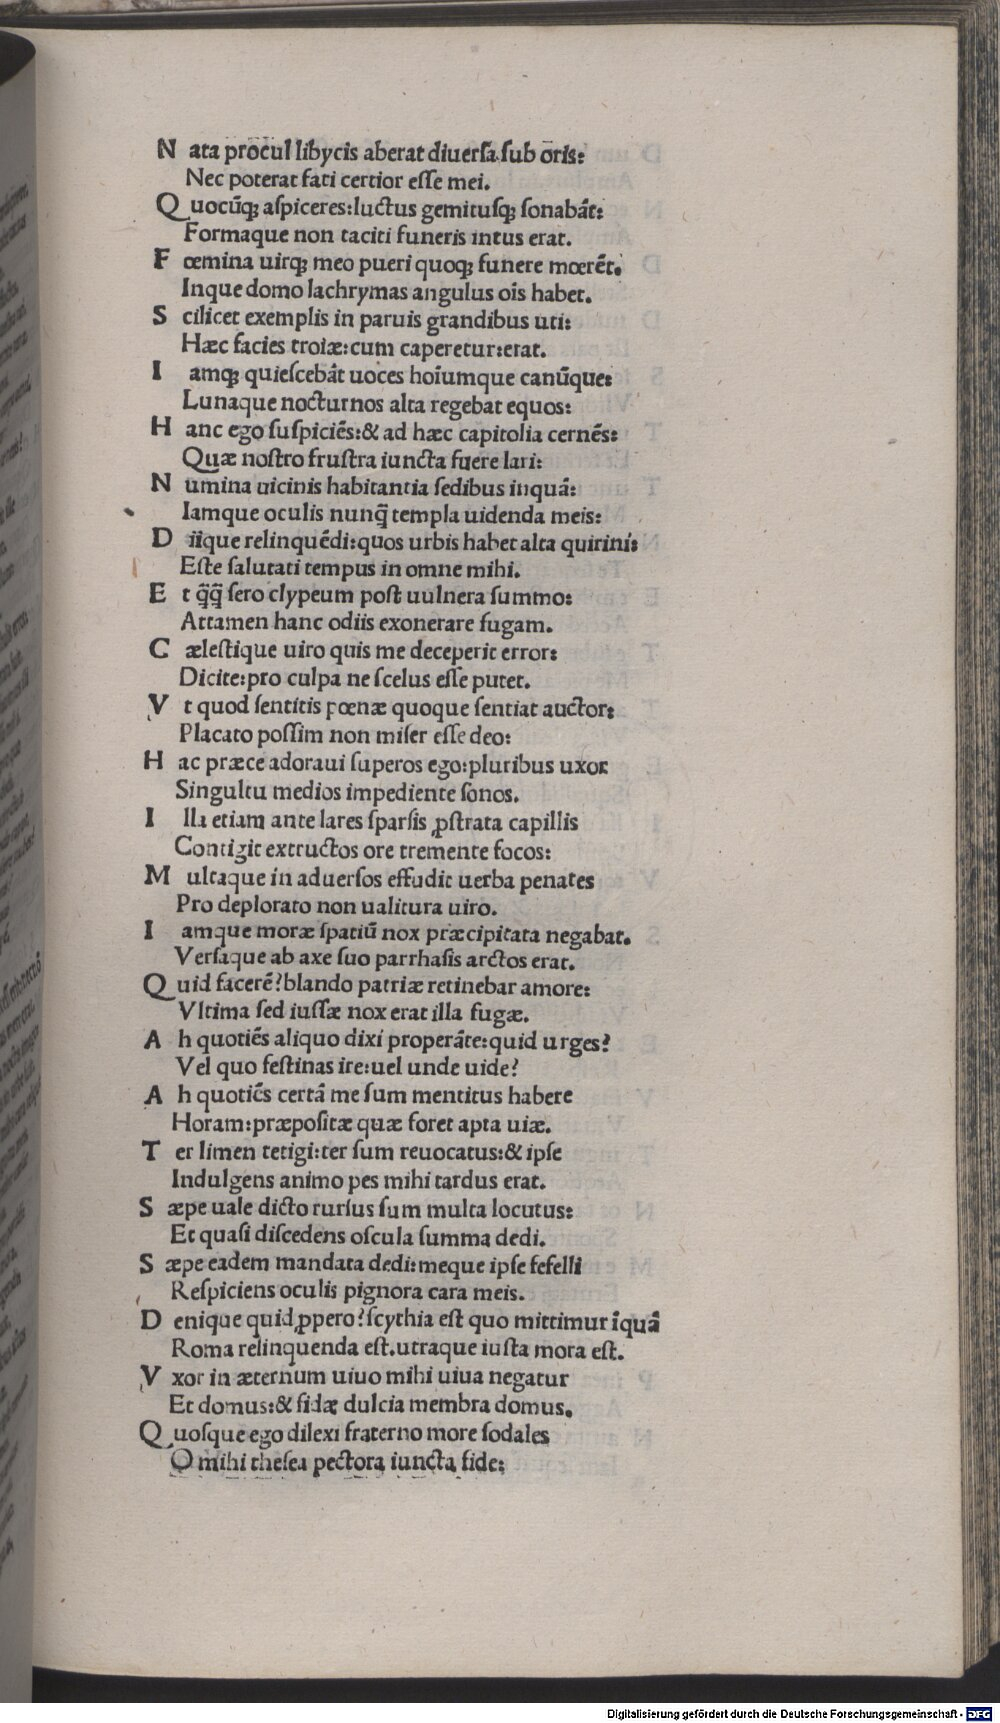 N ata procul libycis aberat diuerſa ſub oris:
Nec poterat fati certior eſſe mei.
Q uocūq; aſpiceres:luctus gemituſq; ſonabāt:
Formaque non taciti funeris intus erat.
F œmina uirq; meo pueri quoq; funere mœrēt.
Inque domo lachrymas angulus oīs habet.
S cilicet exemplis in paruis grandibus uti:
Hæc facies troiæ:cum caperetur:erat.
I amq; quieſcebāt uoces hoīumque canūque:
Lunaque nocturnos alta regebat equos:
H anc ego ſuſpiciēs:& ad hæc capitolia cernēs:
Quæ noſtro fruſtra iuncta fuere lari:
N umina uicinis habitantia ſedibus inquā:
Iamque oculis nunq̄ templa uidenda meis:
D iique relinquēdi:quos urbis habet alta quirini:
Eſte ſalutati tempus in omne mihi.
E t q̄q̄ ſero clypeum poſt uulnera ſummo:
Attamen hanc odiis exonerare fugam.
C æleſtique uiro quis me deceperit error:
Dicite:pro culpa ne ſcelus eſſe putet.
V t quod ſentitis pœnæ quoque ſentiat auctor:
Placato poſſim non miſer eſſe deo:
H ac præce adoraui ſuperos ego:pluribus uxor
Singultu medios impediente ſonos.
I lla etiam ante lares ſparſis ꝓſtrata capillis
Contigit extructos ore tremente focos:
M ultaque in aduerſos effudit uerba penates
Pro deplorato non ualitura uiro.
I amque moræ ſpatiū nox præcipitata negabat.
Verſaque ab axe ſuo parrhaſis arctos erat.
Q uid facerē?blando patriæ retinebar amore:
Vltima ſed iuſſæ nox erat illa fugæ.
A h quotiēs aliquo dixi properāte:quid urges?
Vel quo feſtinas ire:uel unde uide?
A h quotiēs certā me ſum mentitus habere
Horam:præpoſitæ quæ foret apta uiæ.
T er limen tetigi:ter ſum reuocatus:& ipſe
Indulgens animo pes mihi tardus erat.
S æpe uale dicto rurſus ſum multa locutus:
Et quaſi diſcedens oſcula ſumma dedi.
S æpe eadem mandata dedi:meque ipſe fefelli
Reſpiciens oculis pignora cara meis.
D enique quid ꝓpero?ſcythia eſt quo mittimur īquā
Roma relinquenda eſt.utraque iuſta mora eſt.
V xor in æternum uiuo mihi uiua negatur
Et domus:& fidæ dulcia membra domus.
Q uoſque ego dilexi fraterno more ſodales
O mihi theſea pectora iuncta fide:
Digitalisierung gefördert durch die Deutsche Forschungsgemeinschaft - DFG